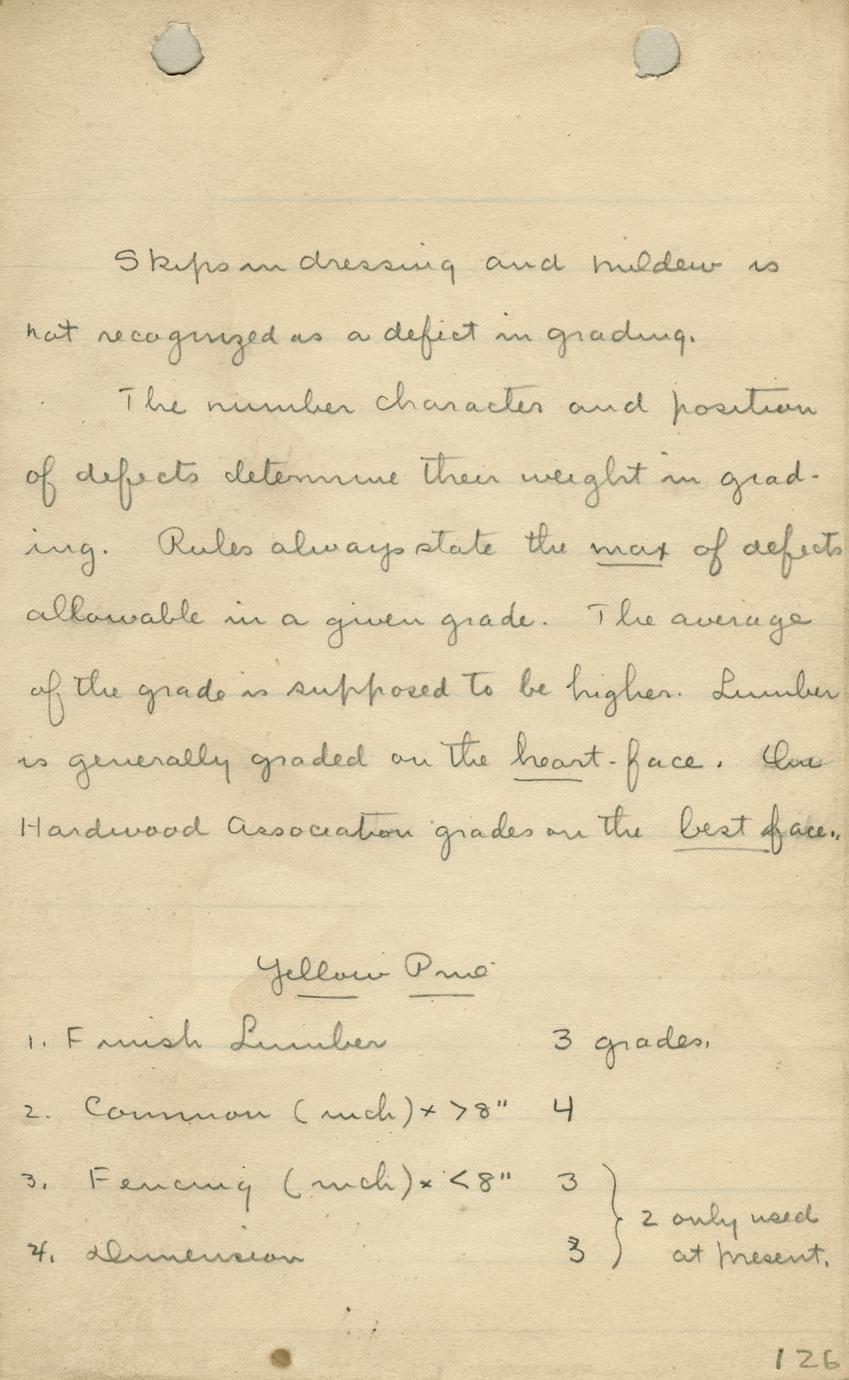 Skips in dressing and mildew is
not recognized as a defect in grading.
The number character and position
of defects determine their weight in grad-
ing. Rules always state the max of defects
allowable in a given grade. The average
of the grade is supposed to be higher. Lumber
is generally graded on the heart-face.
Hardwood Association grades on the best face.
Yellow Pine
1. Finish Lumber 3 grades.
2. Common (inch) x >8" 4
3. Fencing (inch) x <8" 3
2 only used
4. Dimension 3
at present.
126